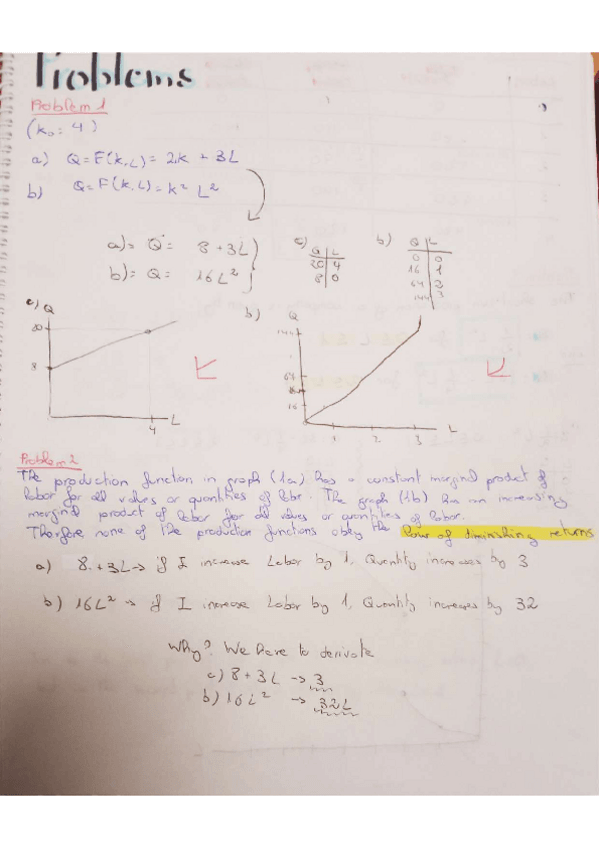 Problems
Problem 1
(K₀ = 4)
a) Q = F(K,L) = 2K + 3L
b) Q = F(K,L) = K² L²
a) = Q = 8 + 3L
b) = Q = 16L²
a)
Q L
20 4
8 0
b)
Q L
0 0
16 1
64 2
144 3
a) Q
20
8
4
L
b) Q
144
64
16
1 2 3
L
Problem 2
The production function in graph (1a) has a constant marginal product of
labor for all values or quantities of labor. The graph (1b) has an increasing
marginal product of labor for all values or quantities of labor.
Therfore none of the production functions obey the law of diminishing returns
a) 8 + 3L → if I increase Labor by 1, Quantity increases by 3
b) 16L² → if I increase Labor by 1, Quantity increases by 32
Why? We have to derivate
a) 8 + 3L → 3
b) 16L² → 32L